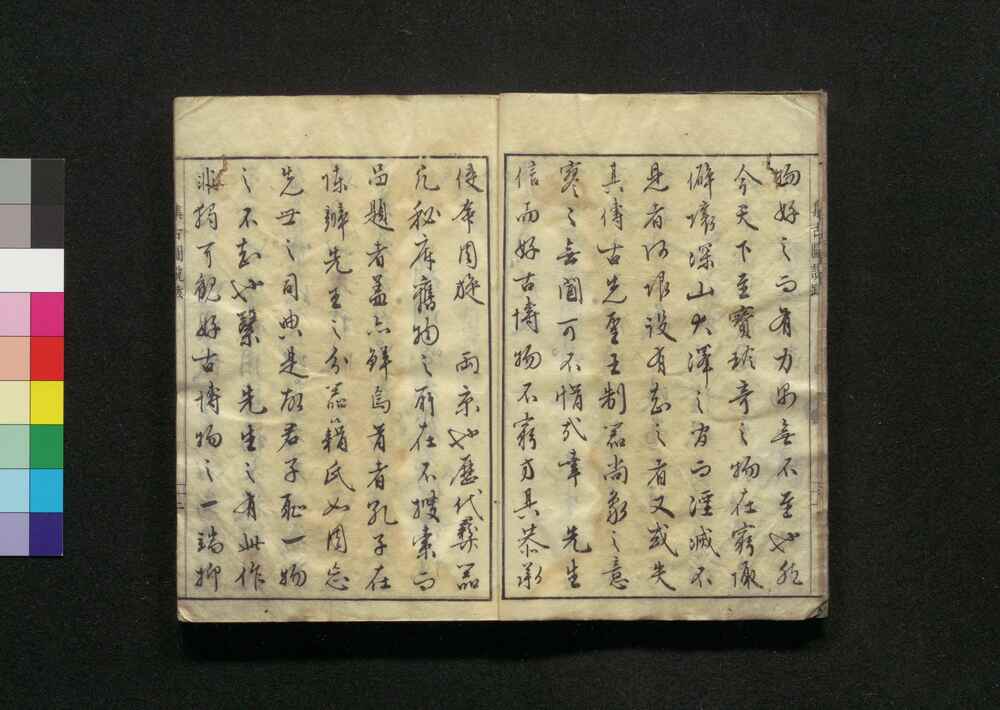 物好之而有力及無不至也然
今天下至寶珍奇之物在窮陬
僻壤深山大澤之者而湮滅不
見者何限設有知之者又或失
其傳古先聖王制器尚象之意
寥之無聞可不惜哉幸 先生
信而好古博物不窮方其恭承
使奉周旋 両京也歷代彝器
凡秘府舊物之所在不搜索而
品題者盖亦鮮焉昔者孔子在
陳辨先王之分器籍氏如周忘
先世之司典是故君子恥一物
之不知也繄 先生之有此作
非獨可觀好古博物之一端抑
集古圖說